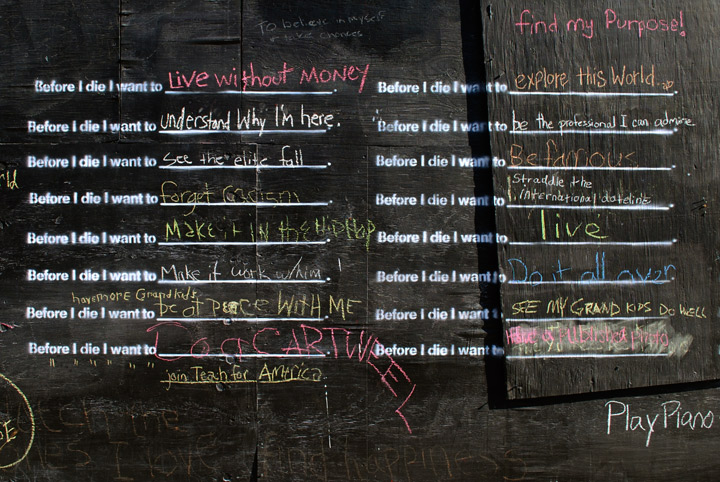 To believe in myself
take chances
Before I die I want to Live without MONEY.
Before I die I want to understand Why I'm here.
Before I die I want to see the elite fall.
Before I die I want to forget.
Before I die I want to Make it IN the HiPHOP.
Before I die I want to Make it work w/him!
have more Grandkids
Before I die I want to be at peace WITH ME
Before I die I want to Do a CARTWHEEL
" " " " " join Teach for AMErica
find my Purpose!
Before I die I want to explore this World.
Before I die I want to be the professional I can admire.
Before I die I want to Be famous.
Straddle the
Before I die I want to international dateline.
Before I die I want to live.
Before I die I want to Do it all over.
Before I die I want to SEE MY GRAND KIDS DO WELL
Before I die I want to
Play Piano
I love happiness